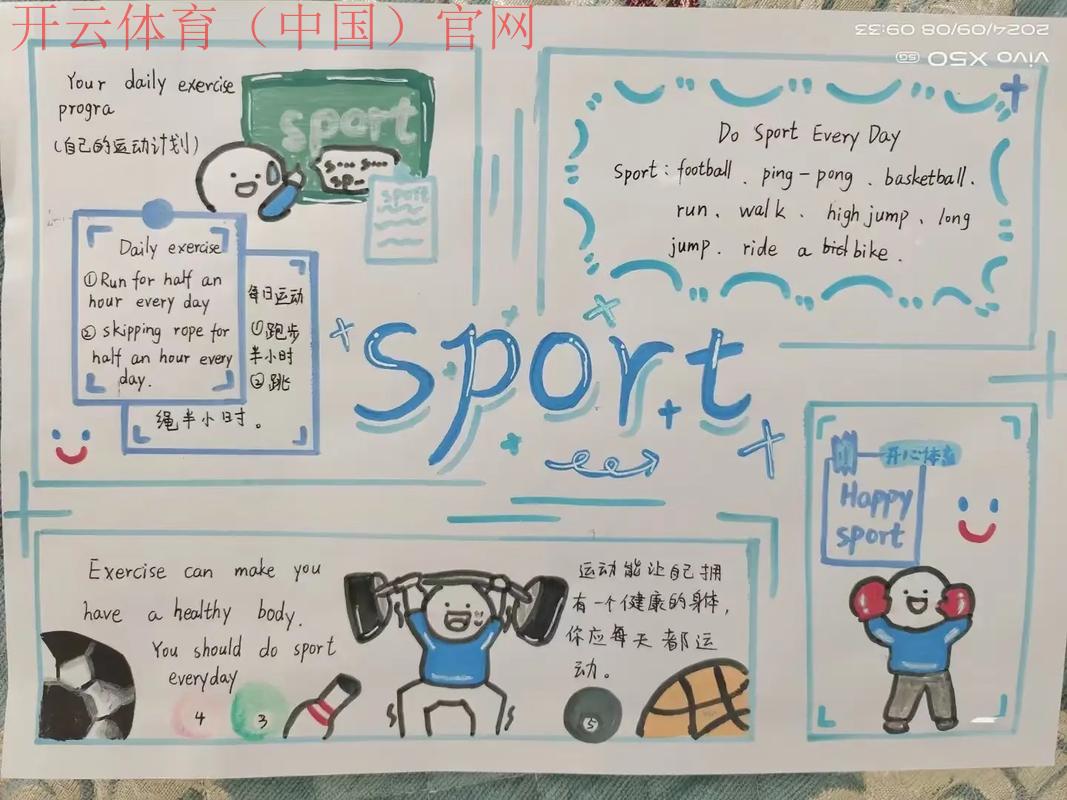 开云体育（中国）官网
2024/09/08 09:33
vivo X50 5G
Your daily exercise
progra
（自己的运动计划）
sport
s... s...
sp..
sport
Daily exercise
①Run for half an
hour every day
② skipping rope for
half an hour every
day.
每日运动
①跑步
半小时
②跳
绳半小时。
Do Sport Every Day
Sport: football、ping-pong、basketball.
run、walk、high jump、long
jump、ride a bike.
sport
开心体育
Happy
sport
Exercise can make you
have a healthy body.
You should do sport
everyday
4
3
运动能让自己拥
有一个健康的身体，
你应每天都运
动。
5